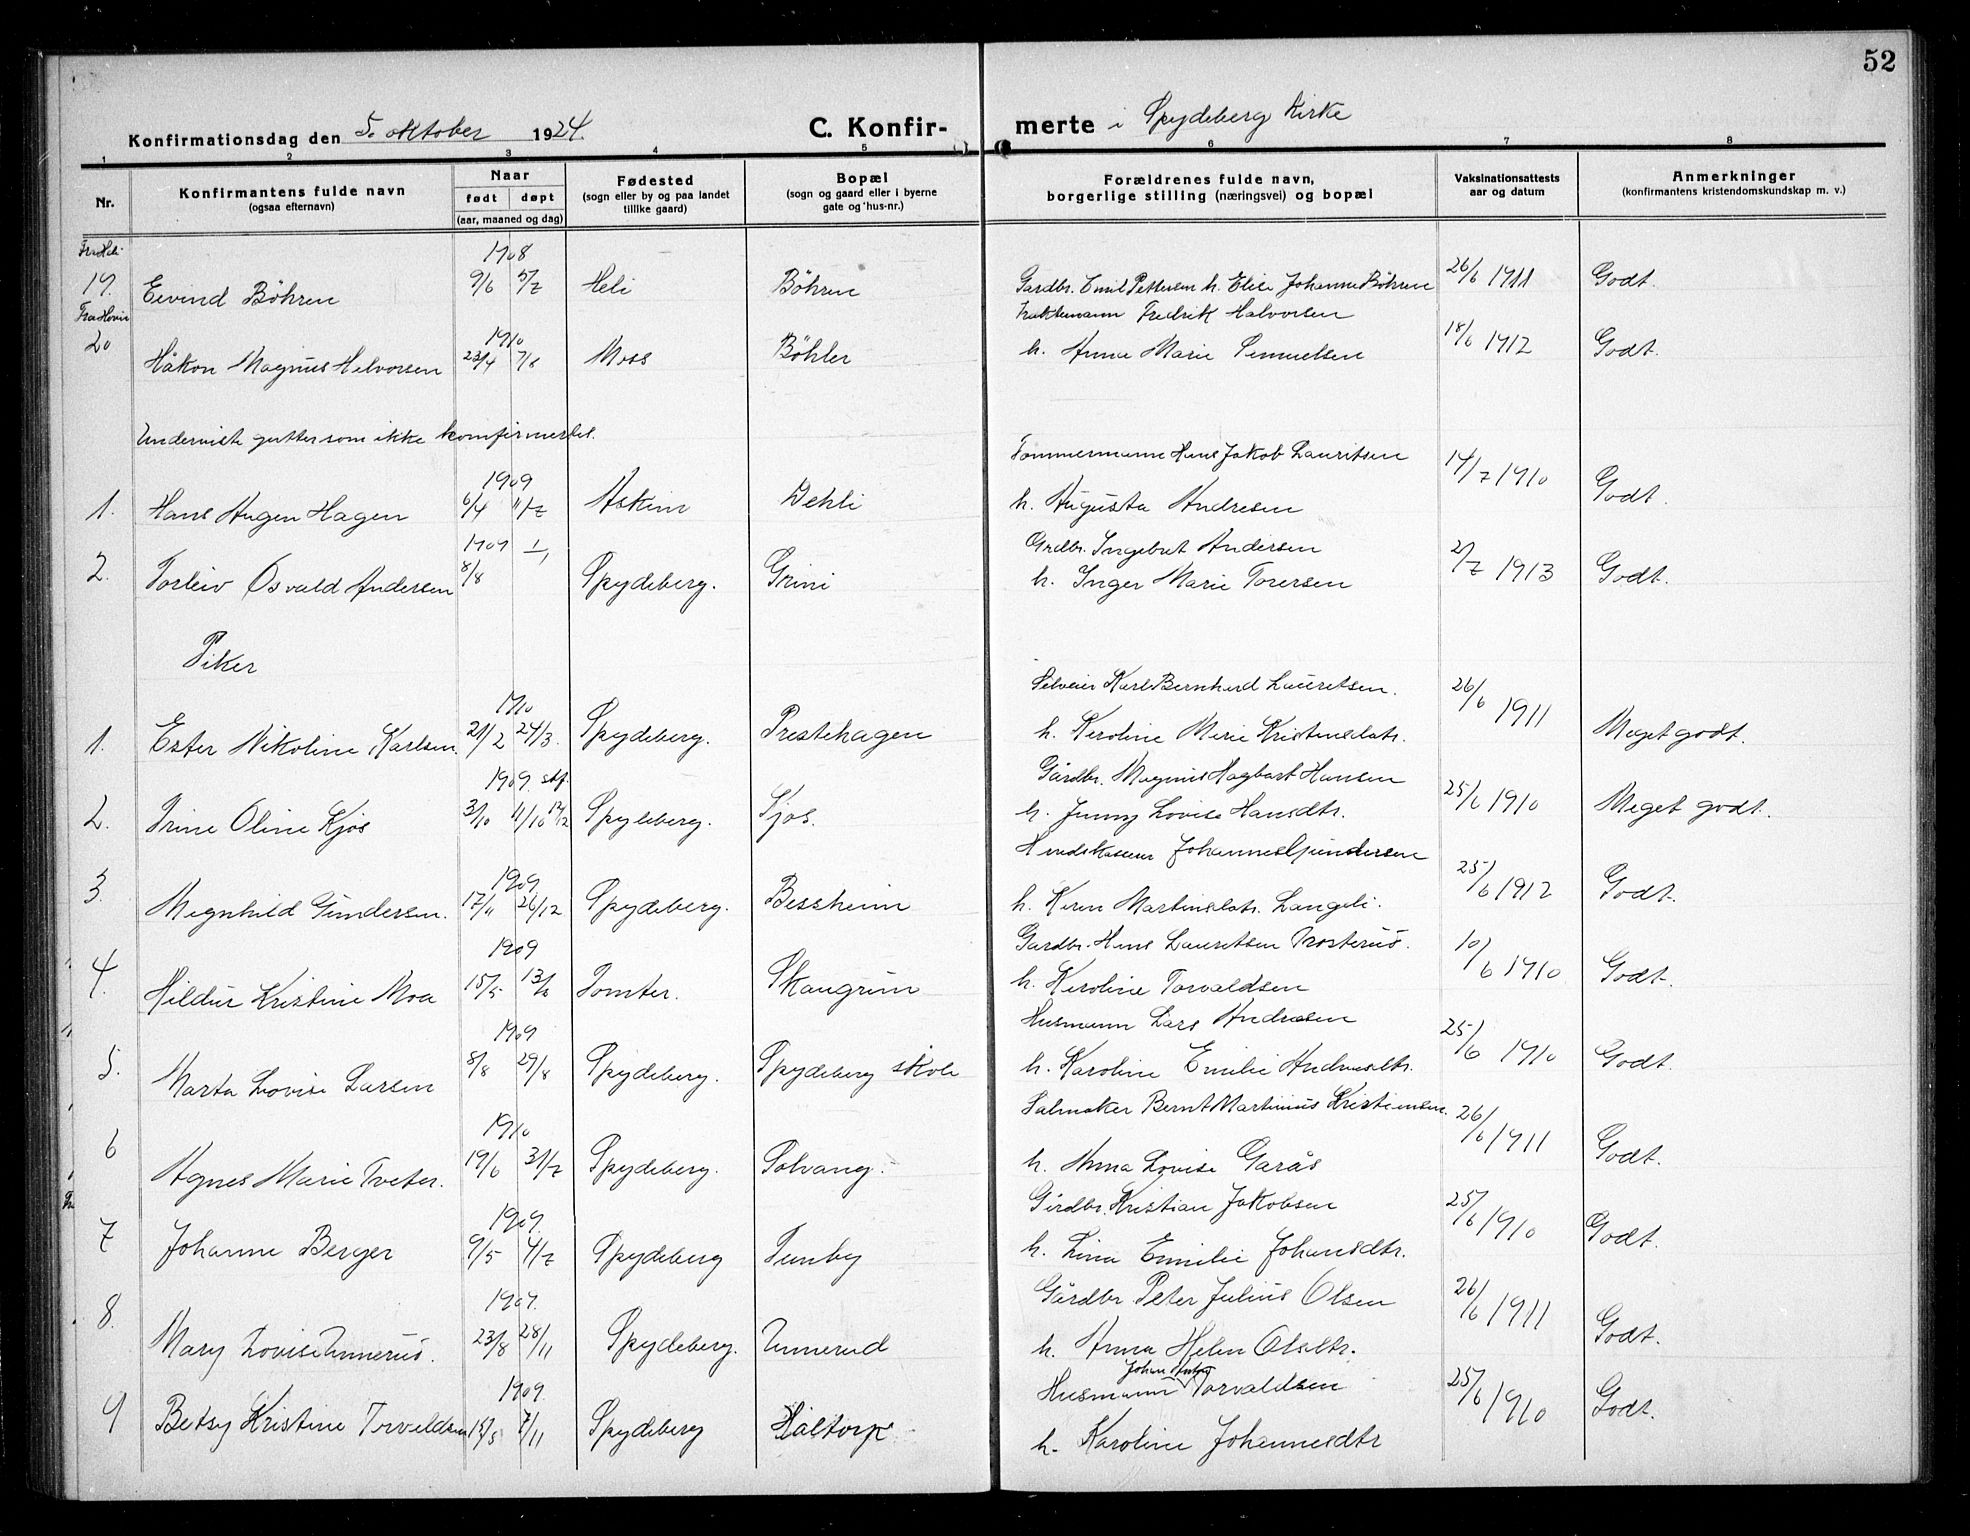 52
Konfirmationsdag den 5. oktober 1924. C. Konfir- merte i Spydeberg Kirke
1 2 3 4 5 6 7 8
Nr.
Konfirmantens fulde navn
(ogsaa efternavn)
Naar
født døpt
(aar, maaned og dag)
Fødested
(sogn eller by og paa landet
tillike gaard)
Bopæl
(sogn og gaard eller i byerne
gate og hus-nr.)
Forældrenes fulde navn,
borgerlige stilling (næringsvei) og bopæl
Vaksinationsattests
aar og datum
Anmerkninger
(konfirmantens kristendomskundskap m. v.)
Fra Heli
1908
19. Eivind Böhren 9/6 5/7 Heli Böhren Gardbr. Emil Pettersen h. Elise Johanne Böhren 26/6 1911 Godt.
Fra Hovin
1910 Fredrik Halvorsen
20 Håkon Magnus Halvorsen 23/4 7/8 Moss Böhler h. Anna Marie Samuelsen 18/6 1912 Godt.
Underviste gutter som ikke konfirmertes.
1909 Tømmermann Hans Jakob Lauritsen
1. Hans Augen Hagen 6/4 11/7 Askim Dehli h. Augusta Andresen 14/7 1910 Godt.
1909 1/1 Grdbr. Ingebret Andersen
2. Torleiv Osvald Andersen 8/8 Spydeberg. Grini h. Inger Marie Torersen 2/7 1913 Godt.
Piker
1910 Karl Bernhard Lauritsen.
1. Ester Nikoline Karlsen. 21/2 24/3. Spydeberg. Prestehagen h. Karoline Marie Kristensdatr. 26/6 1911 Meget godt.
1909 stf. Gårdbr. Magnus Hagbart Hansen
2. Trine Oline Kjos 3/10 11/10 12/12 Spydeberg. Kjos. h. Jenny Lovise Hansdtr. 25/6 1910 Meget godt.
1909 Herredskasserer Johannes Gundersen
3. Magnhild Gundersen. 17/11 26/12 Spydeberg. Bessheim h. Karen Martinsdatr. Langeli. 25/6 1912 Godt.
1909 Gardbr. Hans Lauritsen Trosterud.
4. Hildur Kristine Moa 15/5 13/6 Tomter. Skaugrim h. Karoline Torvaldsen 10/6 1910 Godt.
1909 Husmann Lars Andresen
5. Marta Lovise Larsen 8/8 29/8 Spydeberg. Spydeberg skole h. Karoline Emilie Andreasdtr. 25/6 1910 Godt.
1910 Salmaker Bernt Martinius Kristiansen.
6 Agnes Marie Tveter. 19/6 31/7 Spydeberg. Solvang. h. Anna Lovise Garås 26/6 1911 Godt.
1909. Gårdbr. Kristian Jakobsen
7 Johanne Berger 9/5 4/7 Spydeberg Tunby h. Lina Emilie Johansdtr. 25/6 1910 Godt.
1909. Gårdbr. Peter Julius Olsen
8. Mary Lovise Unnerud. 23/8 28/11 Spydeberg. Unnerud h. Anna Helen Olsdtr. 26/6 1911 Godt.
1909. Husmann Johan Torvaldsen
9 Betsy Kristine Torvaldsen 15/5 7/11 Spydeberg Håltorp h. Karoline Johannesdtr 25/6 1910 Godt.